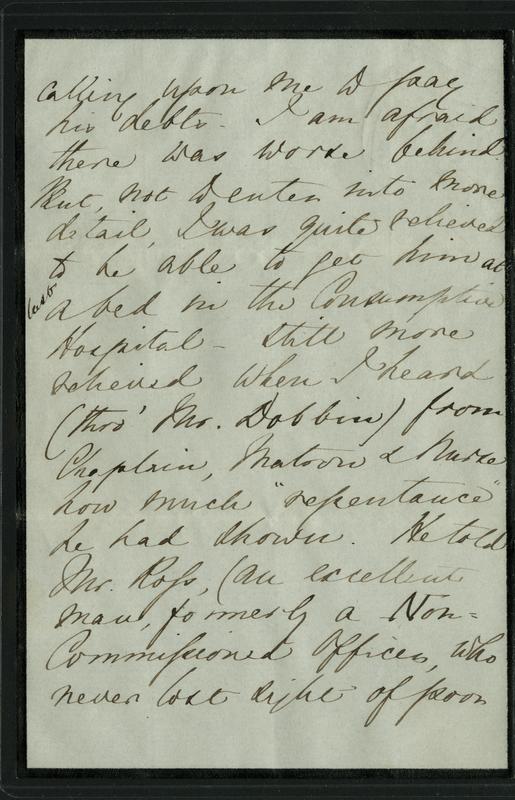 calling upon me to pay
his debts. I am afraid
there was worse behind.
But, not to enter into more
detail, I was quite relieved
to be able to get him at
last
a bed in the Consumptive
Hospital - still more
relieved when I heard
(thro' Mr. Dobbin) from
Chaplain, Matron & Nurse
how much "repentance"
he had shown. He told
Mr. Ross, (an excellent
man, formerly a Non-
Commissioned Officer, who
never lost sight of poor